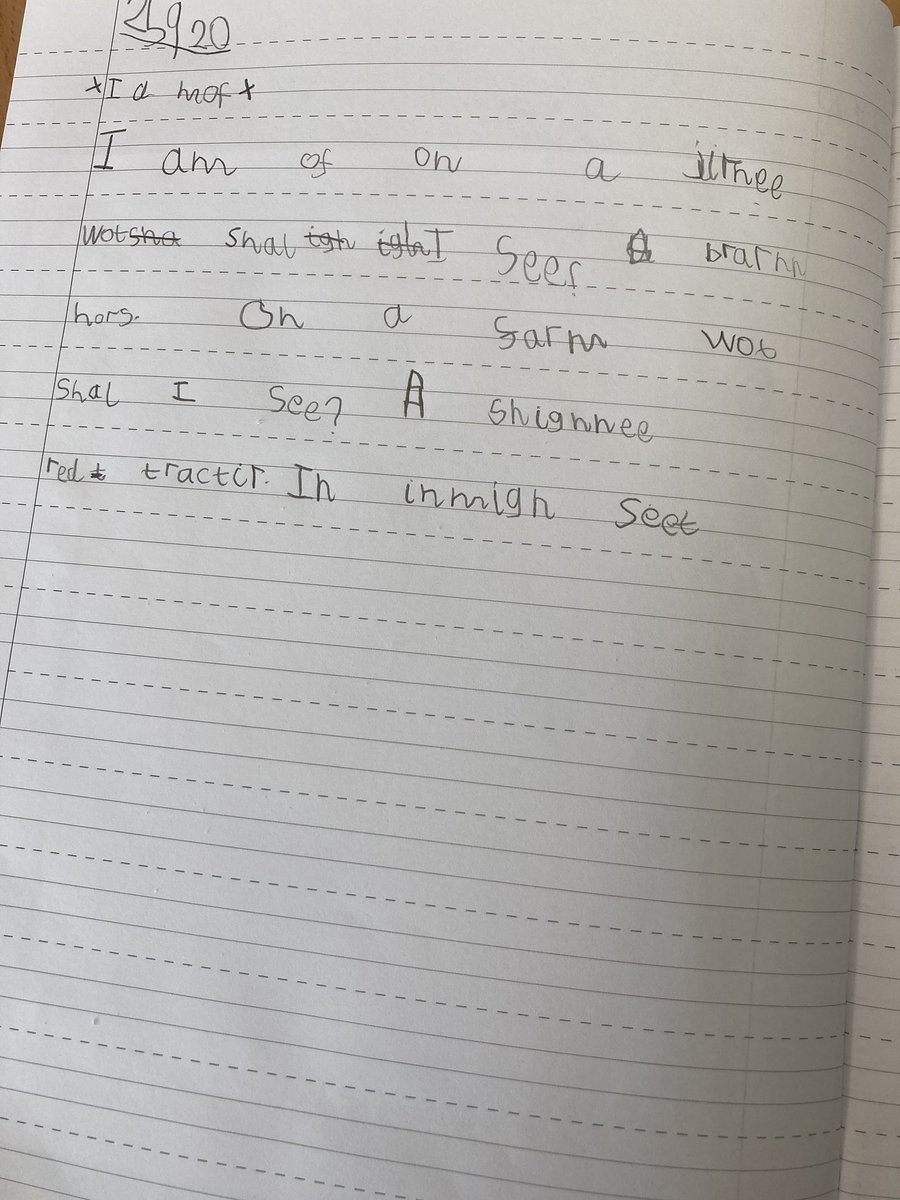 25920
*I a mof*
I am of on a
wotsha shal igh igh I see? A brarnn
hors. On a farm wot
Shal I see? A shignnee
red t tractir. In inmigh seet